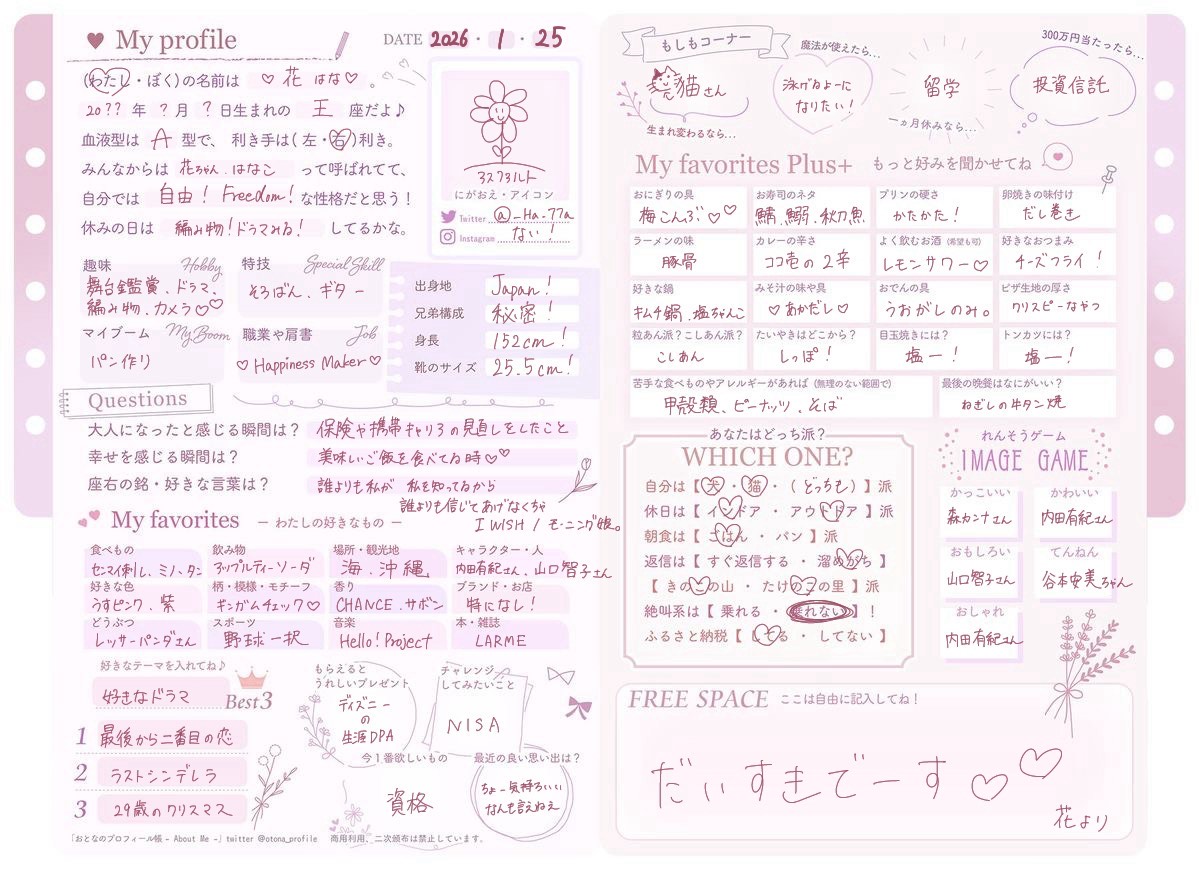 My profile
DATE 2026・1・25
(わたし・ぼく)の名前は ♡花 はな♡。
20?? 年 ? 月 ? 日生まれの 王 座だよ♪
血液型は A 型で、 利き手は(左・右)利き。
みんなからは 花ちゃん.はなこ って呼ばれてて、
自分では 自由! Freedom! な性格だと思う!
休みの日は 編み物!ドラマみる! してるかな。
ヲスファルト
にがおえ・アイコン
Twitter @_Ha_77a
Instagram ない!
趣味 Hobby
舞台鑑賞.ドラマ、
編み物.カメラ♡♡
特技 Special Skill
そろばん、ギター
マイブーム My Boom
パン作り
職業や肩書 Job
♡Happiness Maker♡
出身地 Japan!
兄弟構成 秘密!
身長 152cm!
靴のサイズ 25.5cm!
Questions
大人になったと感じる瞬間は? 保険や携帯キャリアの見直しをしたこと
幸せを感じる瞬間は? 美味しいご飯を食べてる時♡♡
座右の銘・好きな言葉は? 誰よりも私が 私を知ってるから
誰よりも信じてあげなくちゃ
I WISH / モーニング娘。
My favorites ー わたしの好きなもの ー
食べもの
センマイ刺し、ミノ、タン
飲み物
アップルティーソーダ
場所・観光地
海.沖縄
キャラクター・人
内田有紀さん、山口智子さん
好きな色
うすピンク.紫
柄・模様・モチーフ
ギンガムチェック♡
香り
CHANCE.サボン
ブランド・お店
特になし!
どうぶつ
レッサーパンダさん
スポーツ
野球一択
音楽
Hello! Project
本・雑誌
LARME
好きなテーマを入れてね♪
好きなドラマ
Best3
1 最後から二番目の恋
2 ラストシンデレラ
3 29歳のクリスマス
もらえると
うれしいプレゼント
ディズニー
の
生涯DPA
チャレンジ
してみたいこと
NISA
今1番欲しいもの
資格
最近の良い思い出は?
ちょー気持ちいい
なんも言えねえ
「おとなのプロフィール帳 - About Me -」twitter @otona_profile 商用利用、二次頒布は禁止しています。
もしもコーナー
猫さん
生まれ変わるなら...
魔法が使えたら...
泳げるよーに
なりたい!
留学
一ヵ月休みなら...
300万円当たったら...
投資信託
My favorites Plus+ もっと好みを聞かせてね
おにぎりの具
梅こんぶ♡♡
お寿司のネタ
鯖.鰯.秋刀魚
プリンの硬さ
かたかた!
卵焼きの味付け
だし巻き
ラーメンの味
豚骨
カレーの辛さ
ココ壱の2辛
よく飲むお酒 (希望も可)
レモンサワー♡
好きなおつまみ
チーズフライ!
好きな鍋
キムチ鍋.塩ちゃんこ
みそ汁の味や具
♡あかだし♡
おでんの具
うおがしのみ。
ピザ生地の厚さ
クリスピーなやつ
粒あん派?こしあん派?
こしあん
たいやきはどこから?
しっぽ!
目玉焼きには?
塩ー!
トンカツには?
塩ー!
苦手な食べものやアレルギーがあれば (無理のない範囲で)
甲殻類、ピーナッツ、そば
最後の晩餐はなにがいい?
ねぎしの牛タン焼
あなたはどっち派?
WHICH ONE?
自分は【 犬 ・ 猫 ・ ( どっちも ) 】派
休日は【 インドア ・ アウトドア 】派
朝食は【 ごはん ・ パン 】派
返信は【 すぐ返信する ・ 溜めがち 】
【 きのこの山 ・ たけのこの里 】派
絶叫系は【 乗れる ・ 乗れない 】!
ふるさと納税【 してる ・ してない 】
れんそうゲーム
IMAGE GAME
かっこいい
森カンナさん
かわいい
内田有紀さん
おもしろい
山口智子さん
てんねん
谷本安美ちゃん
おしゃれ
内田有紀さん
FREE SPACE ここは自由に記入してね!
だいすきでーす♡♡
花より